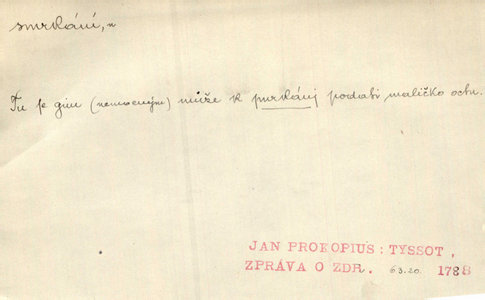 smrkání, n
Tu se gim (nemocným) může k smrkánj podati maličko octu.
JAN PROKOPIUS : TYSSOT ,
ZPRÁVA O ZDR. 63.20. 1788